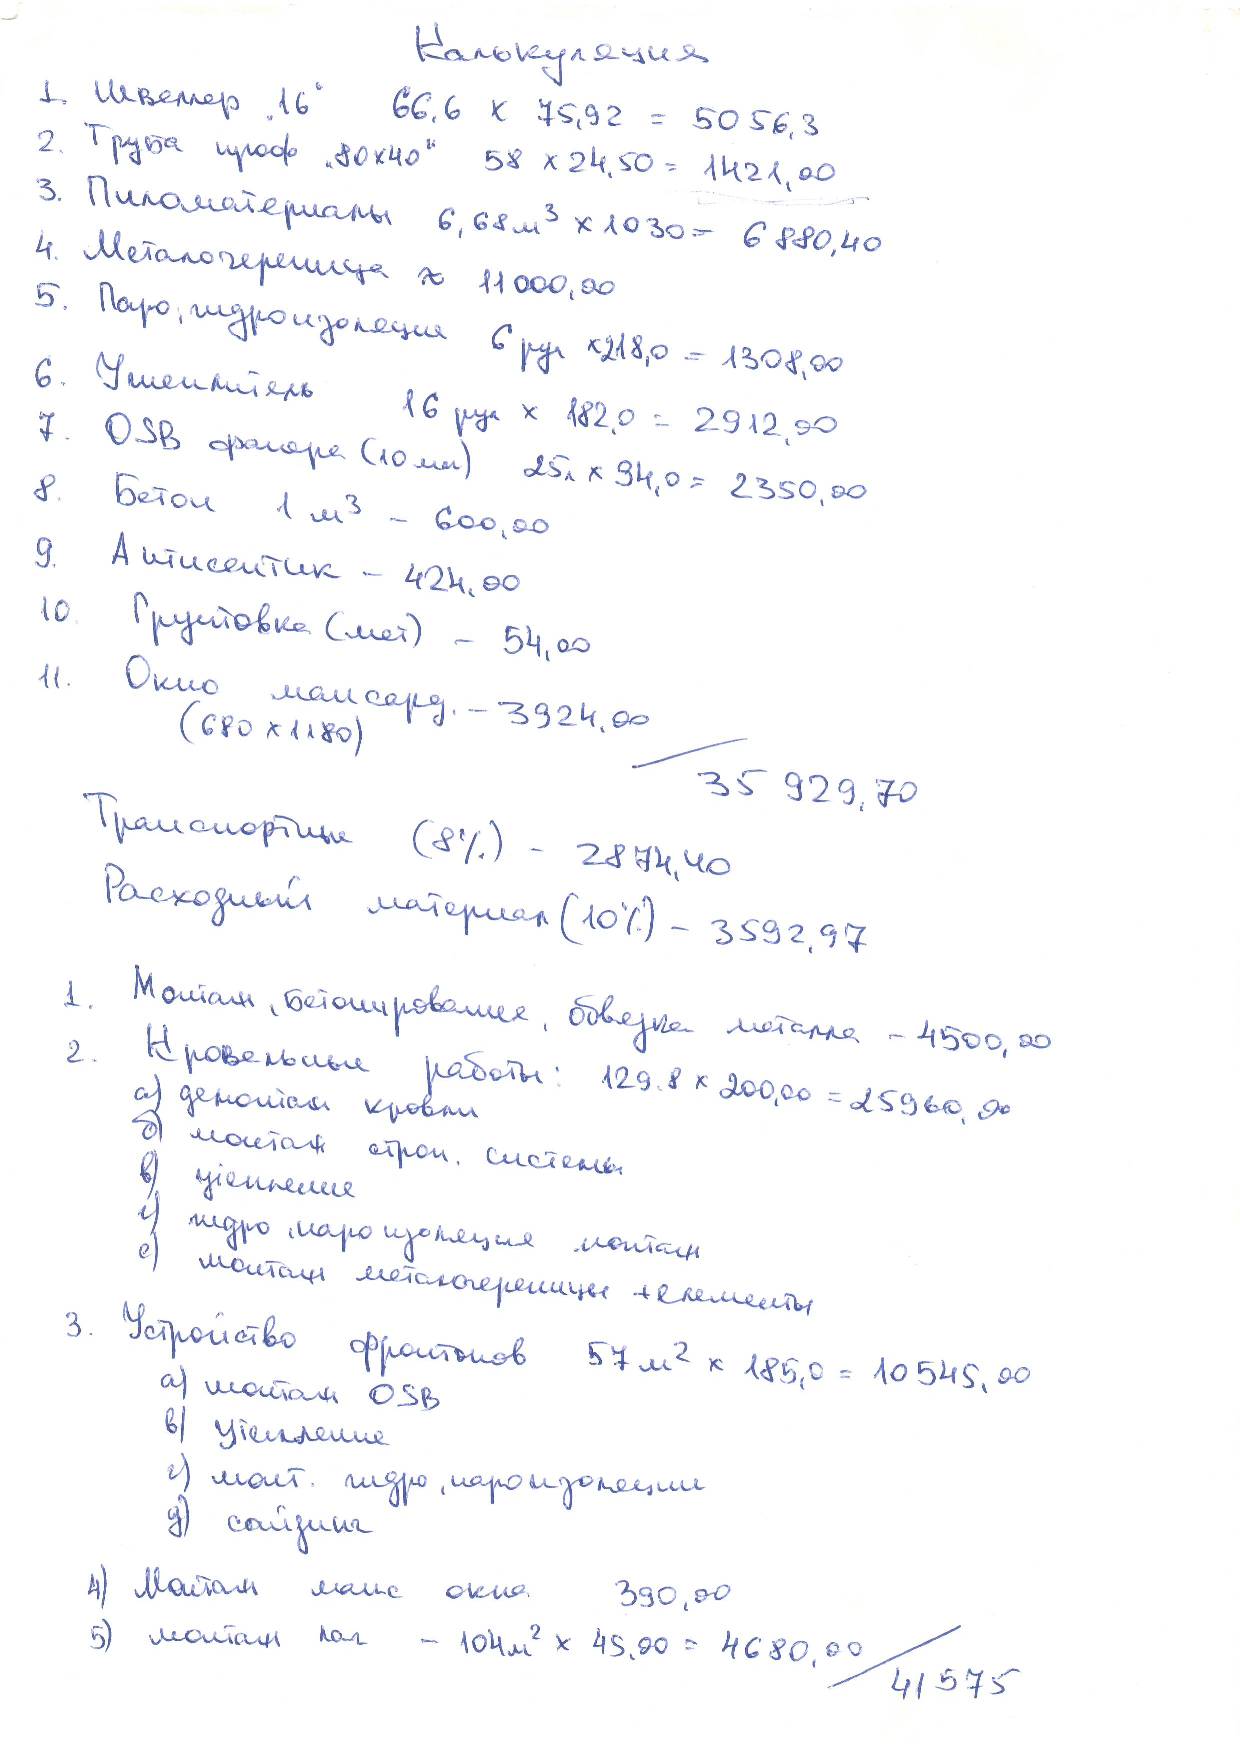 Калькуляция
1. Швеллер "16" 66,6 х 75,92 = 5056,3
2. Труба проф "80х40" 58 х 24,50 = 1421,00
3. Пиломатериалы 6,68м³ х 1030 = 6880,40
4. Металочерепица ≈ 11000,00
5. Паро, гидроизоляция 6 рул х218,0 = 1308,00
6. Утеплитель 16 рул х 182,0 = 2912,00
7. OSB фанера (10мм) 25л х 94,0 = 2350,00
8. Бетон 1 м³ – 600,00
9. Антисептик – 424,00
10. Грунтовка (мет) – 54,00
11. Окно мансард. – 3924,00
(680 х 1180)
35 929,70
Транспортные (8%) – 2874,40
Расходный материал (10%) – 3592,97
1. Монтаж, бетонирование, обвязка металла – 4500,00
2. Кровельные работы: 129.8 х 200,00 = 25960,00
а) демонтаж кровли
б) монтаж строп. системы
в) утепление
г) гидро, пароизоляция монтаж
е) монтаж металочерепицы + елементы
3. Устройство фронтонов 57м² х 185,0 = 10545,00
а) монтаж OSB
в) утепление
г) монт. гидро, пароизоляции
д) сайдинг
4) Монтаж манс окна 390,00
5) монтаж лаг – 104м² х 45,00 = 4680,00
41575